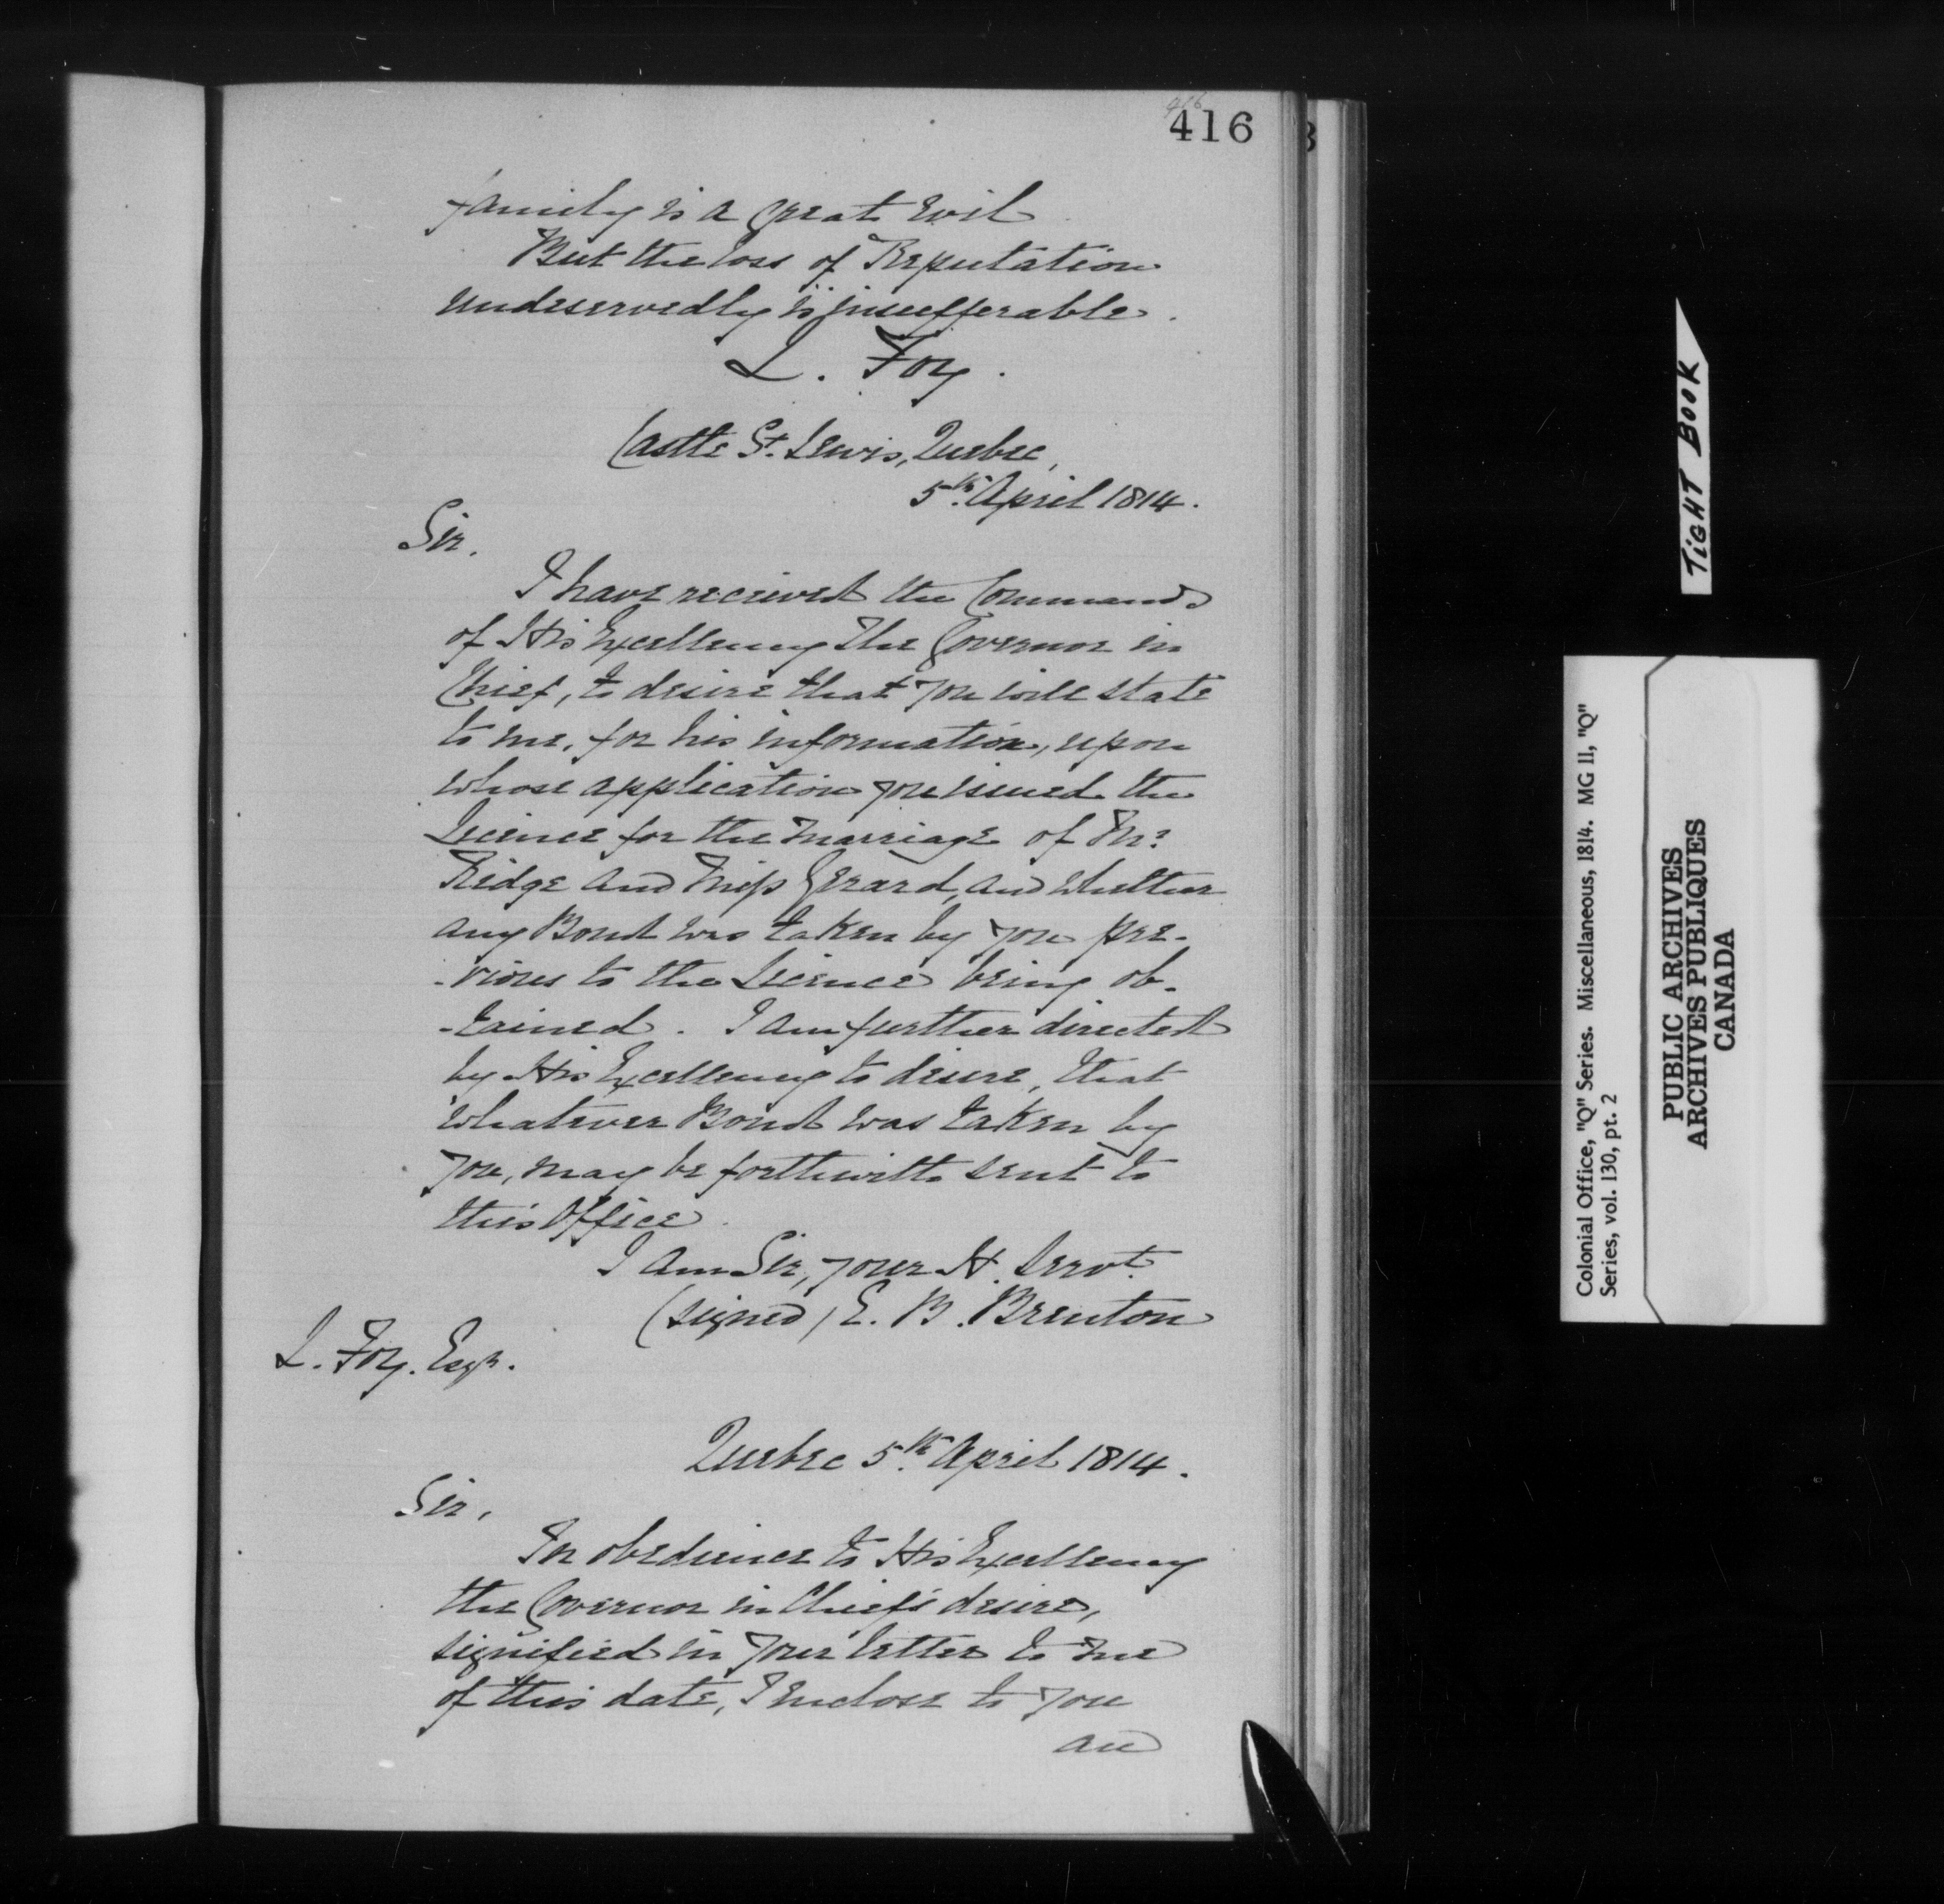 416
416
family is a great evil
But the loss of Reputation
undeservedly is insufferable.
L. Foy.
Castle St. Lewis, Quebec,
5th. April 1814.
Sir.
I have received the Commands
of His Excellency The Governor in
Chief, to desire that you will state
to me, for his information, upon
whose application you issued the
Licence for the marriage of Mr.
Ridge and Miss Gerard, and whether
any Bond was taken by you pre-
-vious to the Licence being ob-
-tained. I am further directed
by His Excellency to desire, that
whatever Bond was taken by
you, may be forthwith sent to
this Office.
I am Sir, your H. Servt.
(signed) E. B. Brenton
L. Foy. Esqr.
Quebec 5th. April 1814.
Sir,
In obedience to His Excellency
the Governor in Chief's desire,
signified in your letter to me
of this date, I inclose to you
an
TIGHT BOOK
Colonial Office, "Q" Series. Miscellaneous, 1814. MG 11, "Q"
Series, vol. 130, pt. 2
PUBLIC ARCHIVES
ARCHIVES PUBLIQUES
CANADA